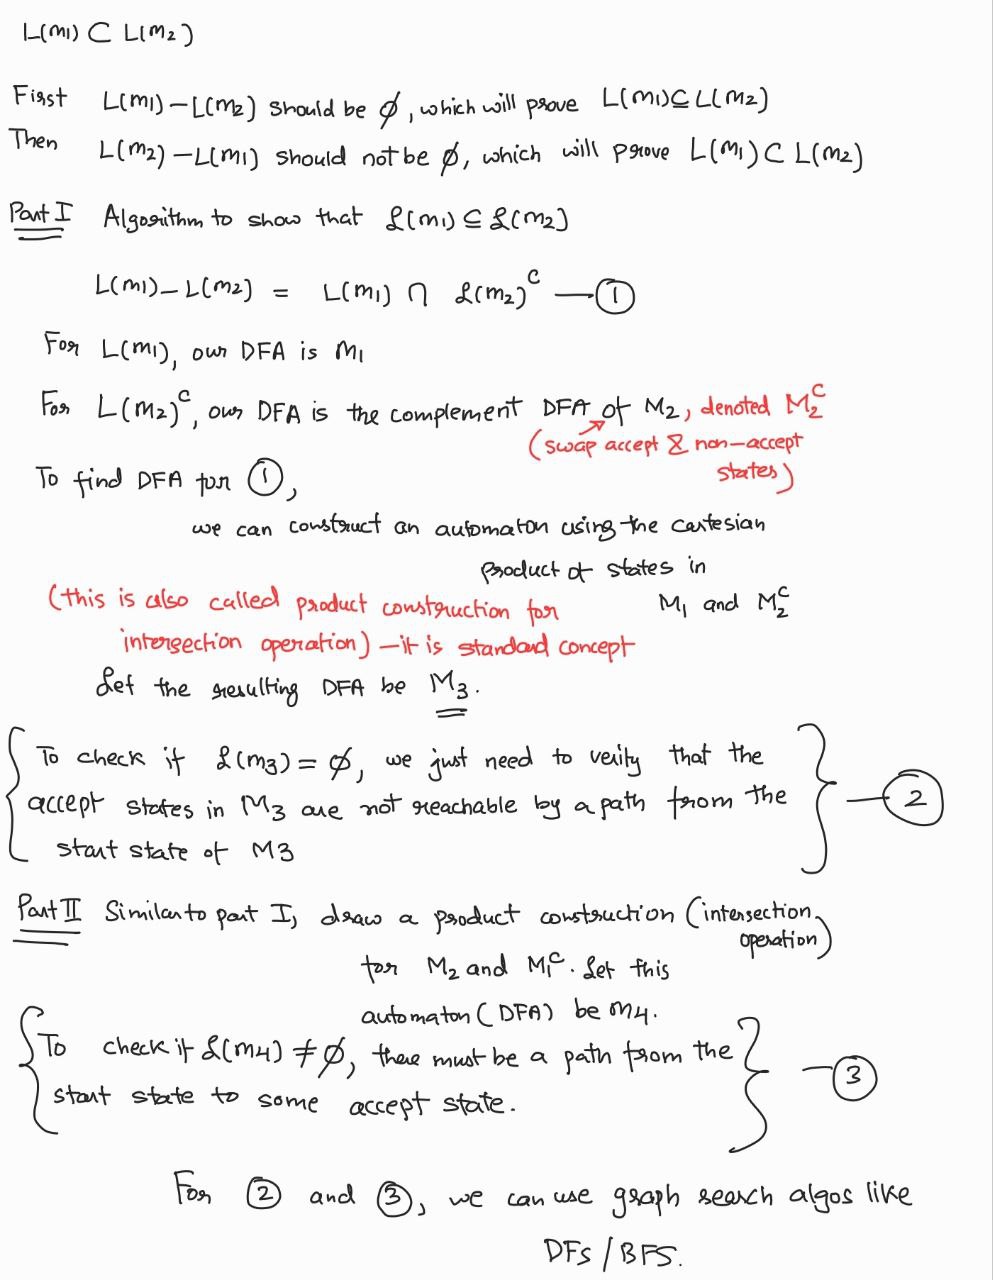 L(m1) ⊂ L(m2)
First L(m1) – L(m2) should be ∅, which will prove L(m1) ⊆ L(m2)
Then L(m2) – L(m1) should not be ∅, which will prove L(m1) ⊂ L(m2)
Part I Algorithm to show that L(m1) ⊆ L(m2)
L(m1) – L(m2) = L(m1) ∩ L(m2)^C — ①
For L(m1), our DFA is M1
For L(m2)^C, our DFA is the complement DFA of M2, denoted M2^C
(swap accept & non-accept
states)
To find DFA for ①,
we can construct an automaton using the cartesian
product of states in
M1 and M2^C
(this is also called product construction for
intersection operation) – it is standard concept
Let the resulting DFA be M3.
{ To check if L(m3) = ∅, we just need to verify that the
accept states in M3 are not reachable by a path from the } — ②
start state of M3
Part II Similar to part I, draw a product construction (intersection
operation)
for M2 and M1^C. Let this
automaton (DFA) be m4.
{ To check if L(m4) ≠ ∅, there must be a path from the } — ③
start state to some accept state.
For ② and ③, we can use graph search algos like
DFS / BFS.